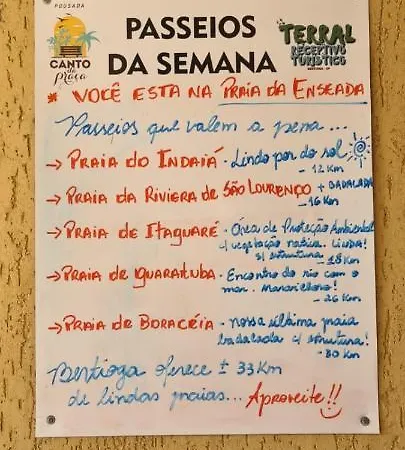 POUSADA
CANTO
da
Praça
PASSEIOS
DA SEMANA
TERRAL
RECEPTIVO
TURÍSTICO
* VOCÊ ESTA NA PRAIA DA ENSEADA
Passeios que valem a pena...
→ PRAIA DO INDAIÁ - Lindo por do sol
- 12 Km
→ PRAIA DA RIVIERA DE SÃO LOURENÇO + BADALADA
- 16 Km
→ PRAIA DE ITAGUARÉ - Área de Proteção Ambiental
c/ vegetação nativa. LINDA!
s/ estrutura - 18 Km
→ PRAIA DE GUARATUBA - Encontro do rio com o
mar. Maravilhoso!
- 26 Km
→ PRAIA DE BORACÉIA - nossa última praia
badalada c/ estrutura!
- 30 Km
Bertioga oferece ± 33 Km
de lindas praias... Aproveite!!